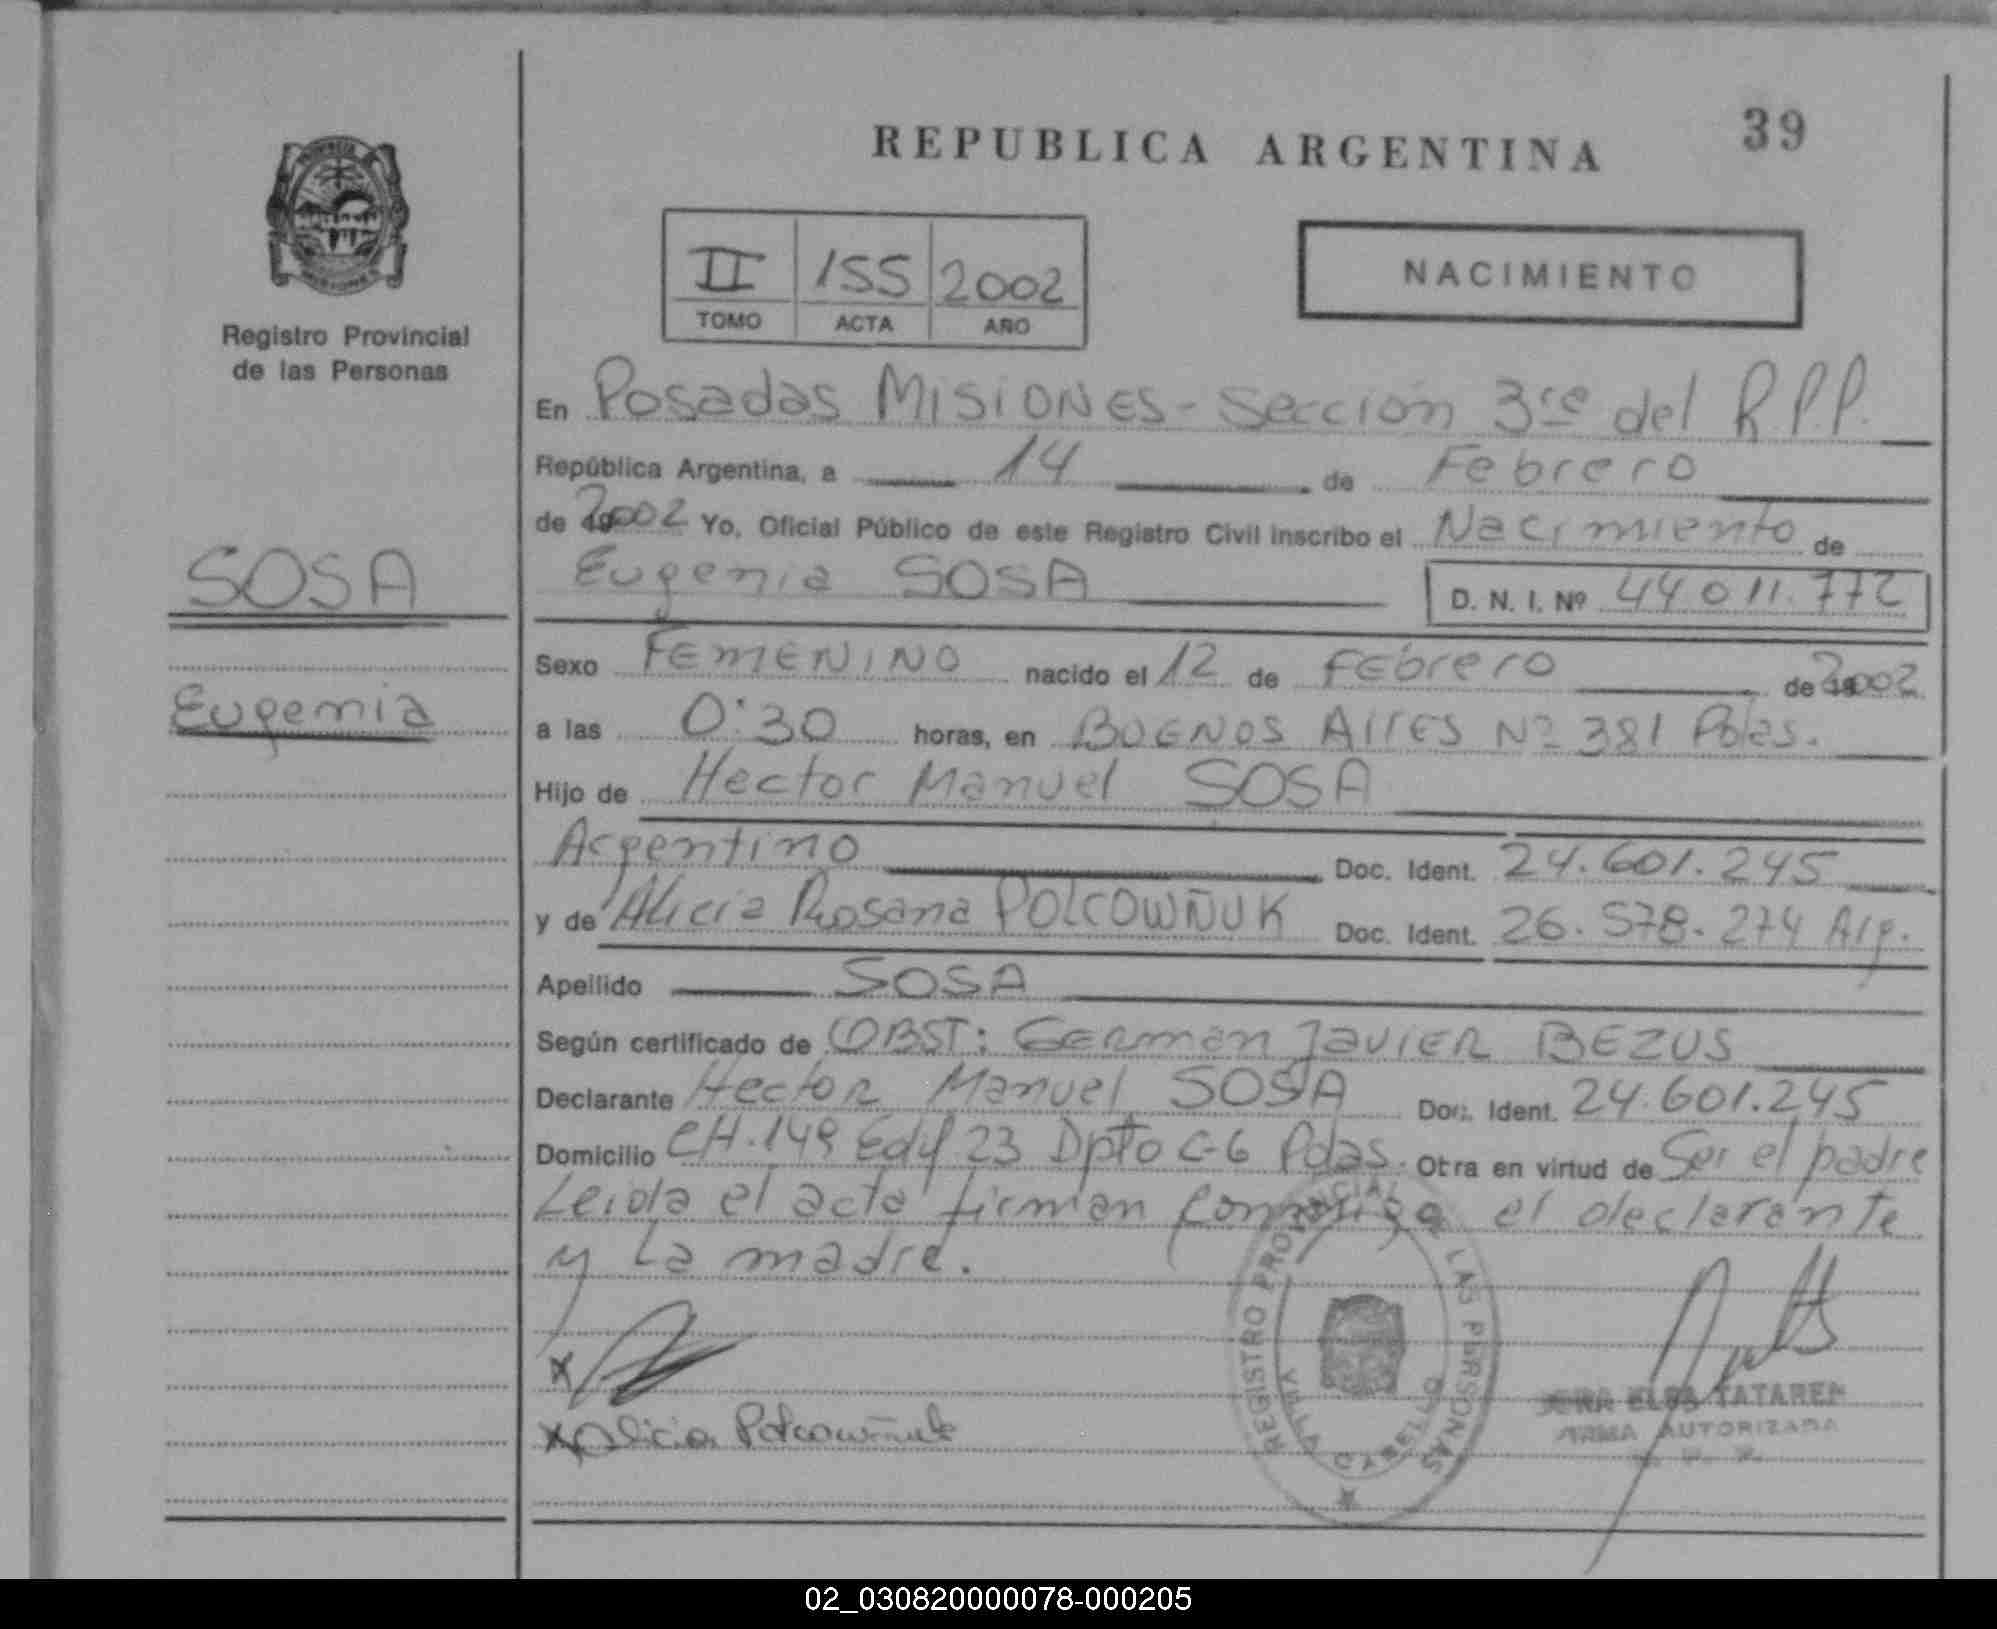 REPUBLICA ARGENTINA
39
II 155 2002
TOMO ACTA AÑO
NACIMIENTO
Registro Provincial
de las Personas
En Posadas MISIONES - Sección 3ra del R.P.P.
República Argentina, a 14 de Febrero
de 2002 Yo, Oficial Público de este Registro Civil inscribo el Nacimiento de
SOSA
Eugenia SOSA D. N. I. Nº 44011.772
Sexo FEMENINO nacido el 12 de Febrero de 2002
Eugenia
a las 0:30 horas, en BUENOS AIRES Nº 381 Pdas.
Hijo de Hector Manuel SOSA
Argentino Doc. Ident. 24.601.245
y de Alicia Rosana POLCOWÑUK Doc. Ident. 26.578.274 Arg.
Apellido SOSA
Según certificado de OBST: GERMAN JAVIER BEZUS
Declarante Hector Manuel SOSA Doc. Ident. 24.601.245
Domicilio CH.149 Edif 23 Dpto C-6 Pdas. Otra en virtud de Ser el padre
Leida el acta firman conmigo el declarante
y La madre.
X
X Alicia Polcowñuk
REGISTRO PROVINCIAL DE LAS PERSONAS
VILLA CABELLO
ELSA TATAREN
FIRMA AUTORIZADA
02_030820000078-000205